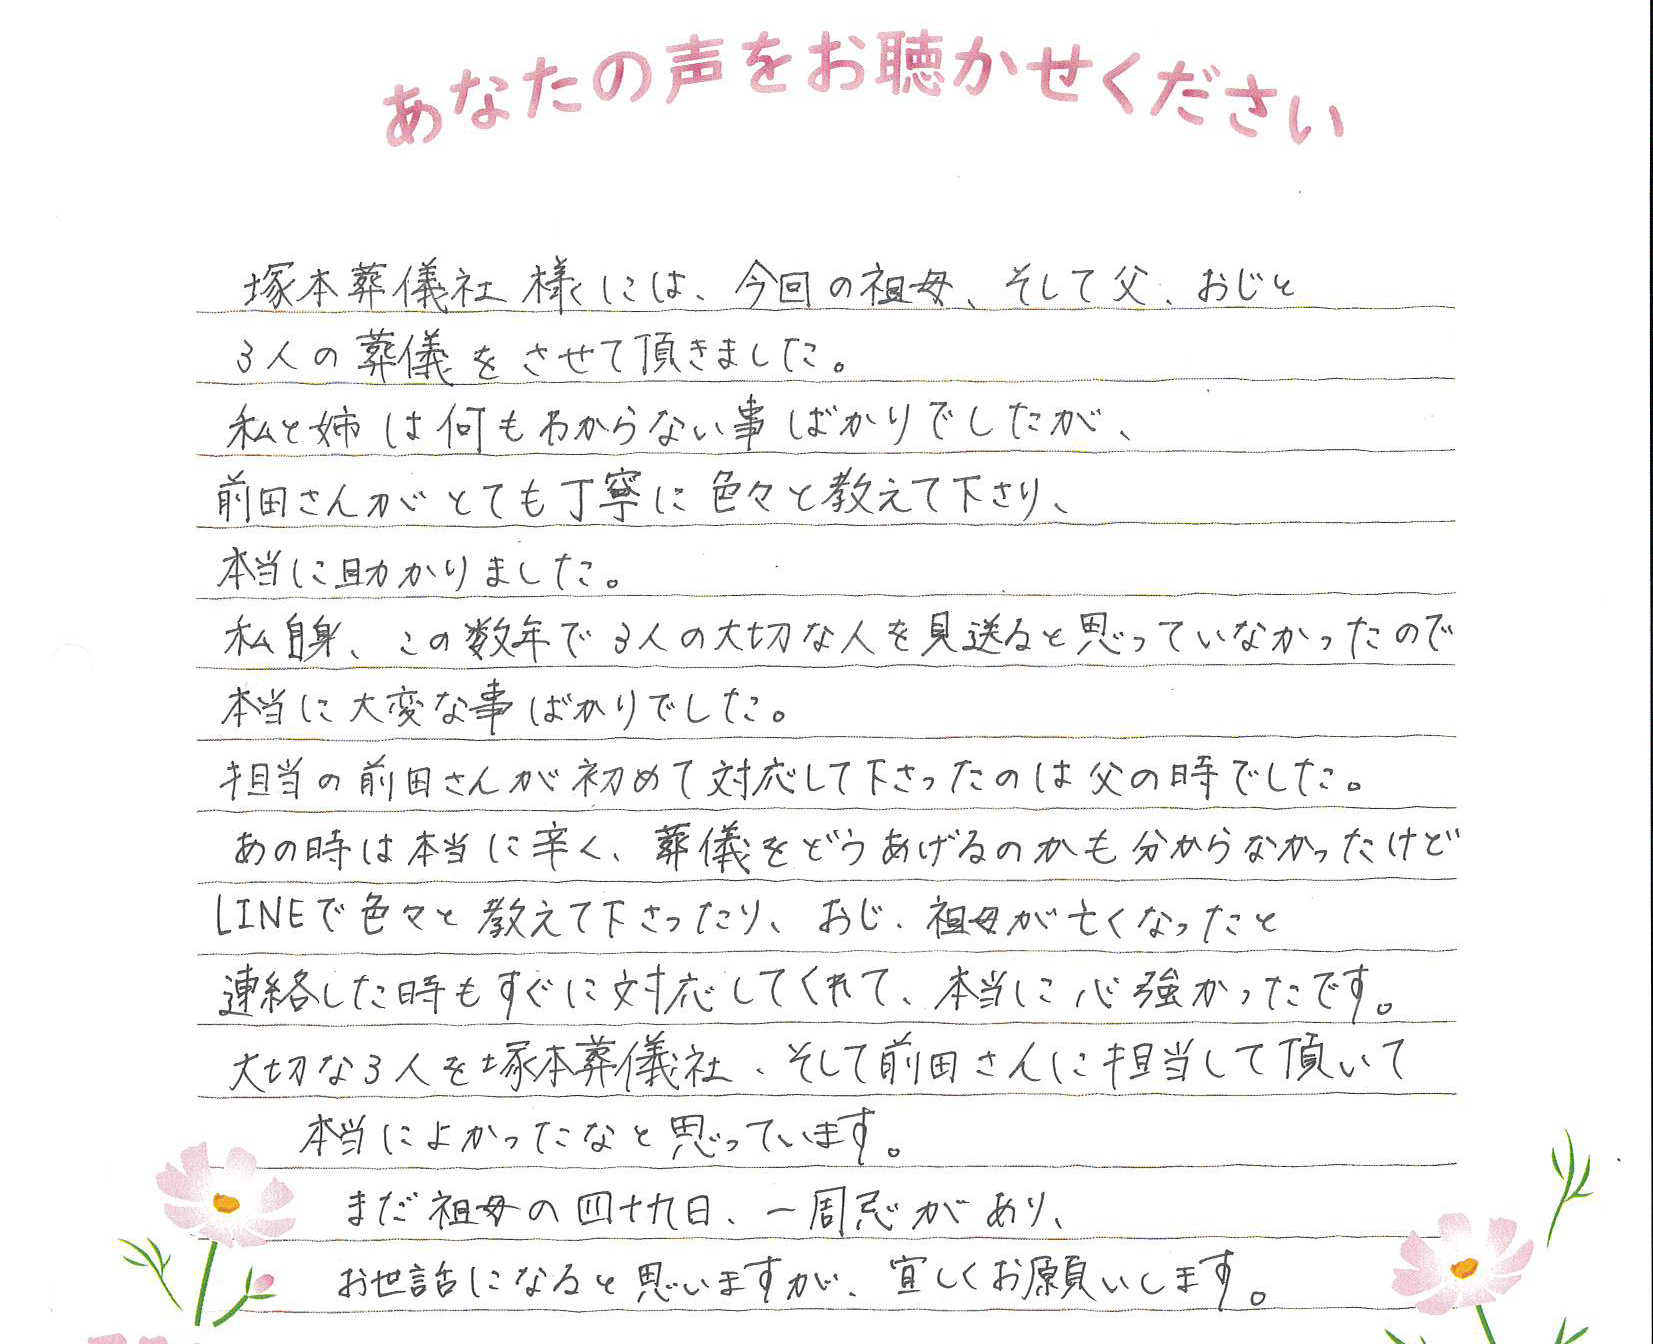 あなたの声をお聴かせください
塚本葬儀社様には、今回の祖母、そして父、おじと
3人の葬儀をさせて頂きました。
私と姉は何もわからない事ばかりでしたが、
前田さんがとても丁寧に色々と教えて下さり、
本当に助かりました。
私自身、この数年で3人の大切な人を見送ると思っていなかったので
本当に大変な事ばかりでした。
担当の前田さんが初めて対応して下さったのは父の時でした。
あの時は本当に辛く、葬儀をどうあげるのかも分からなかったけど
LINEで色々と教えて下さったり、おじ、祖母が亡くなったと
連絡した時もすぐに対応してくれて、本当に心強かったです。
大切な3人を塚本葬儀社、そして前田さんに担当して頂いて
本当によかったなと思っています。
まだ祖母の四十九日、一周忌があり、
お世話になると思いますが、宜しくお願いします。